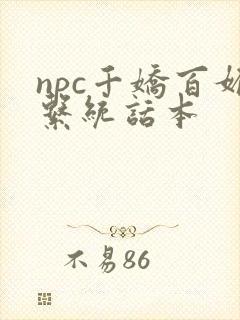 npc千嬌百
繫統話本
不易86